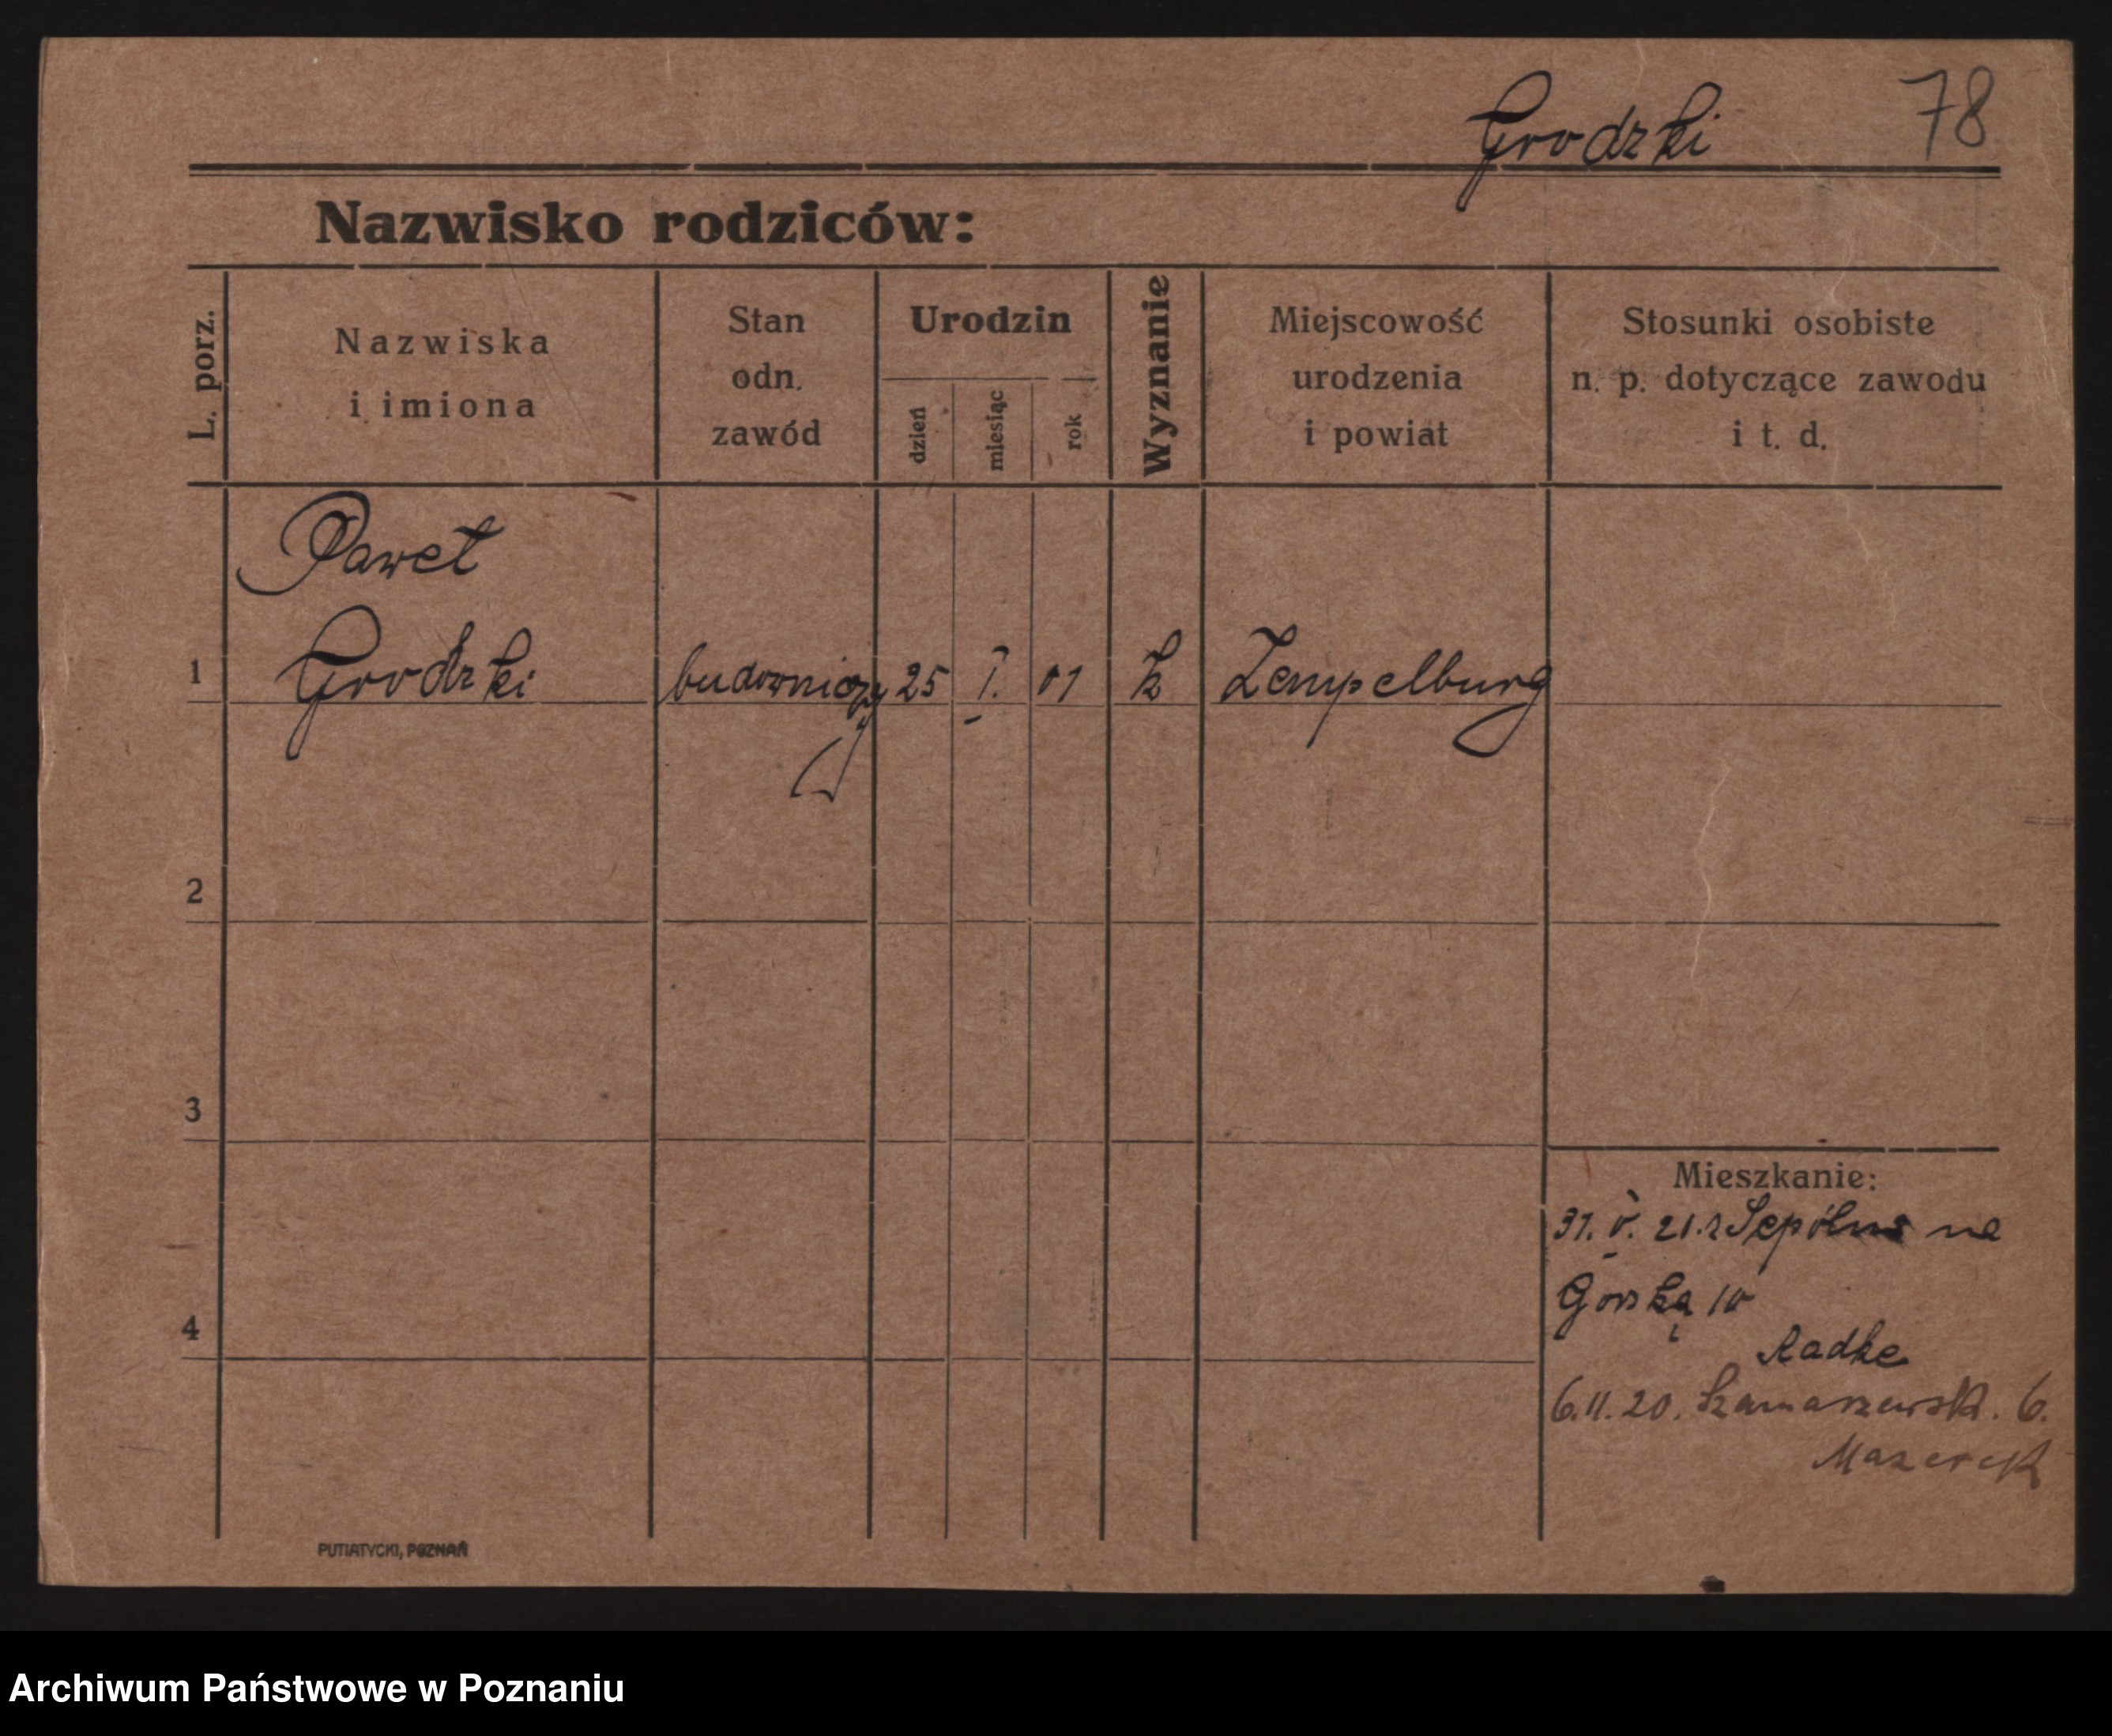 Grodzki 78
Nazwisko rodziców:
L. porz.
Nazwiska
i imiona
Stan
odn.
zawód
Urodzin
dzień
miesiąc
rok
Wyznanie
Miejscowość
urodzenia
i powiat
Stosunki osobiste
n. p. dotyczące zawodu
i t. d.
Paweł
1 Grodzki budowniczy 25 I. 01 k Zempelburg
2
3
4
Mieszkanie:
31. V. 21. z Sępólna na
Górską 10
Radke
6.11.20. 6.
PUTIATYCKI, POZNAŃ
Archiwum Państwowe w Poznaniu